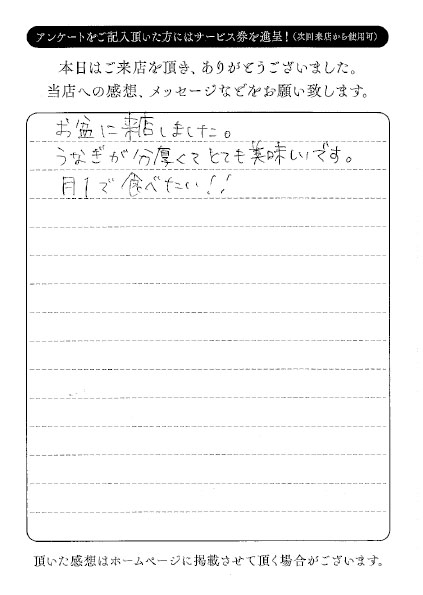 アンケートをご記入頂いた方にはサービス券を進呈！（次回来店から使用可）
本日はご来店を頂き、ありがとうございました。
当店への感想、メッセージなどをお願い致します。
お盆に来店しました。
うなぎが分厚くてとても美味しいです。
月1で食べたい!!
頂いた感想はホームページに掲載させて頂く場合がございます。